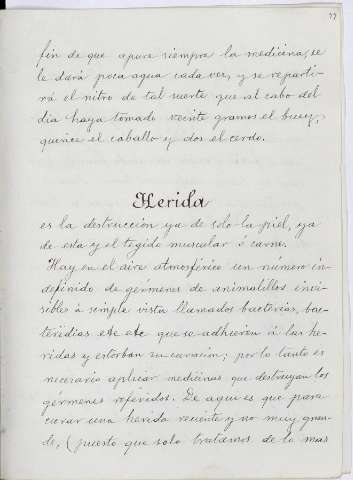 77
fin de que apure siempre la medicina, se
le dará poca agua cada vez, y se reparti-
rá el nitro de tal suerte que al cabo del
dia haya tomado veinte gramos el buey,
quince el caballo y dos el cerdo.
Herida
es la destrucción ya de solo la piel, ya
de esta y el tegido muscular ó carne.
Hay en el aire atmosférico un número in-
definido de gérmenes de animalillos invi-
sibles á simple vista llamados bacterias, bac-
teridias etc etc que se adhieren á las he-
ridas y estorban su curación; por lo tanto es
necesario aplicar medicinas que destruyan los
gérmenes referidos. De aqui es que para
curar una herida reciente y no muy gran-
de, (puesto que solo tratamos de lo mas